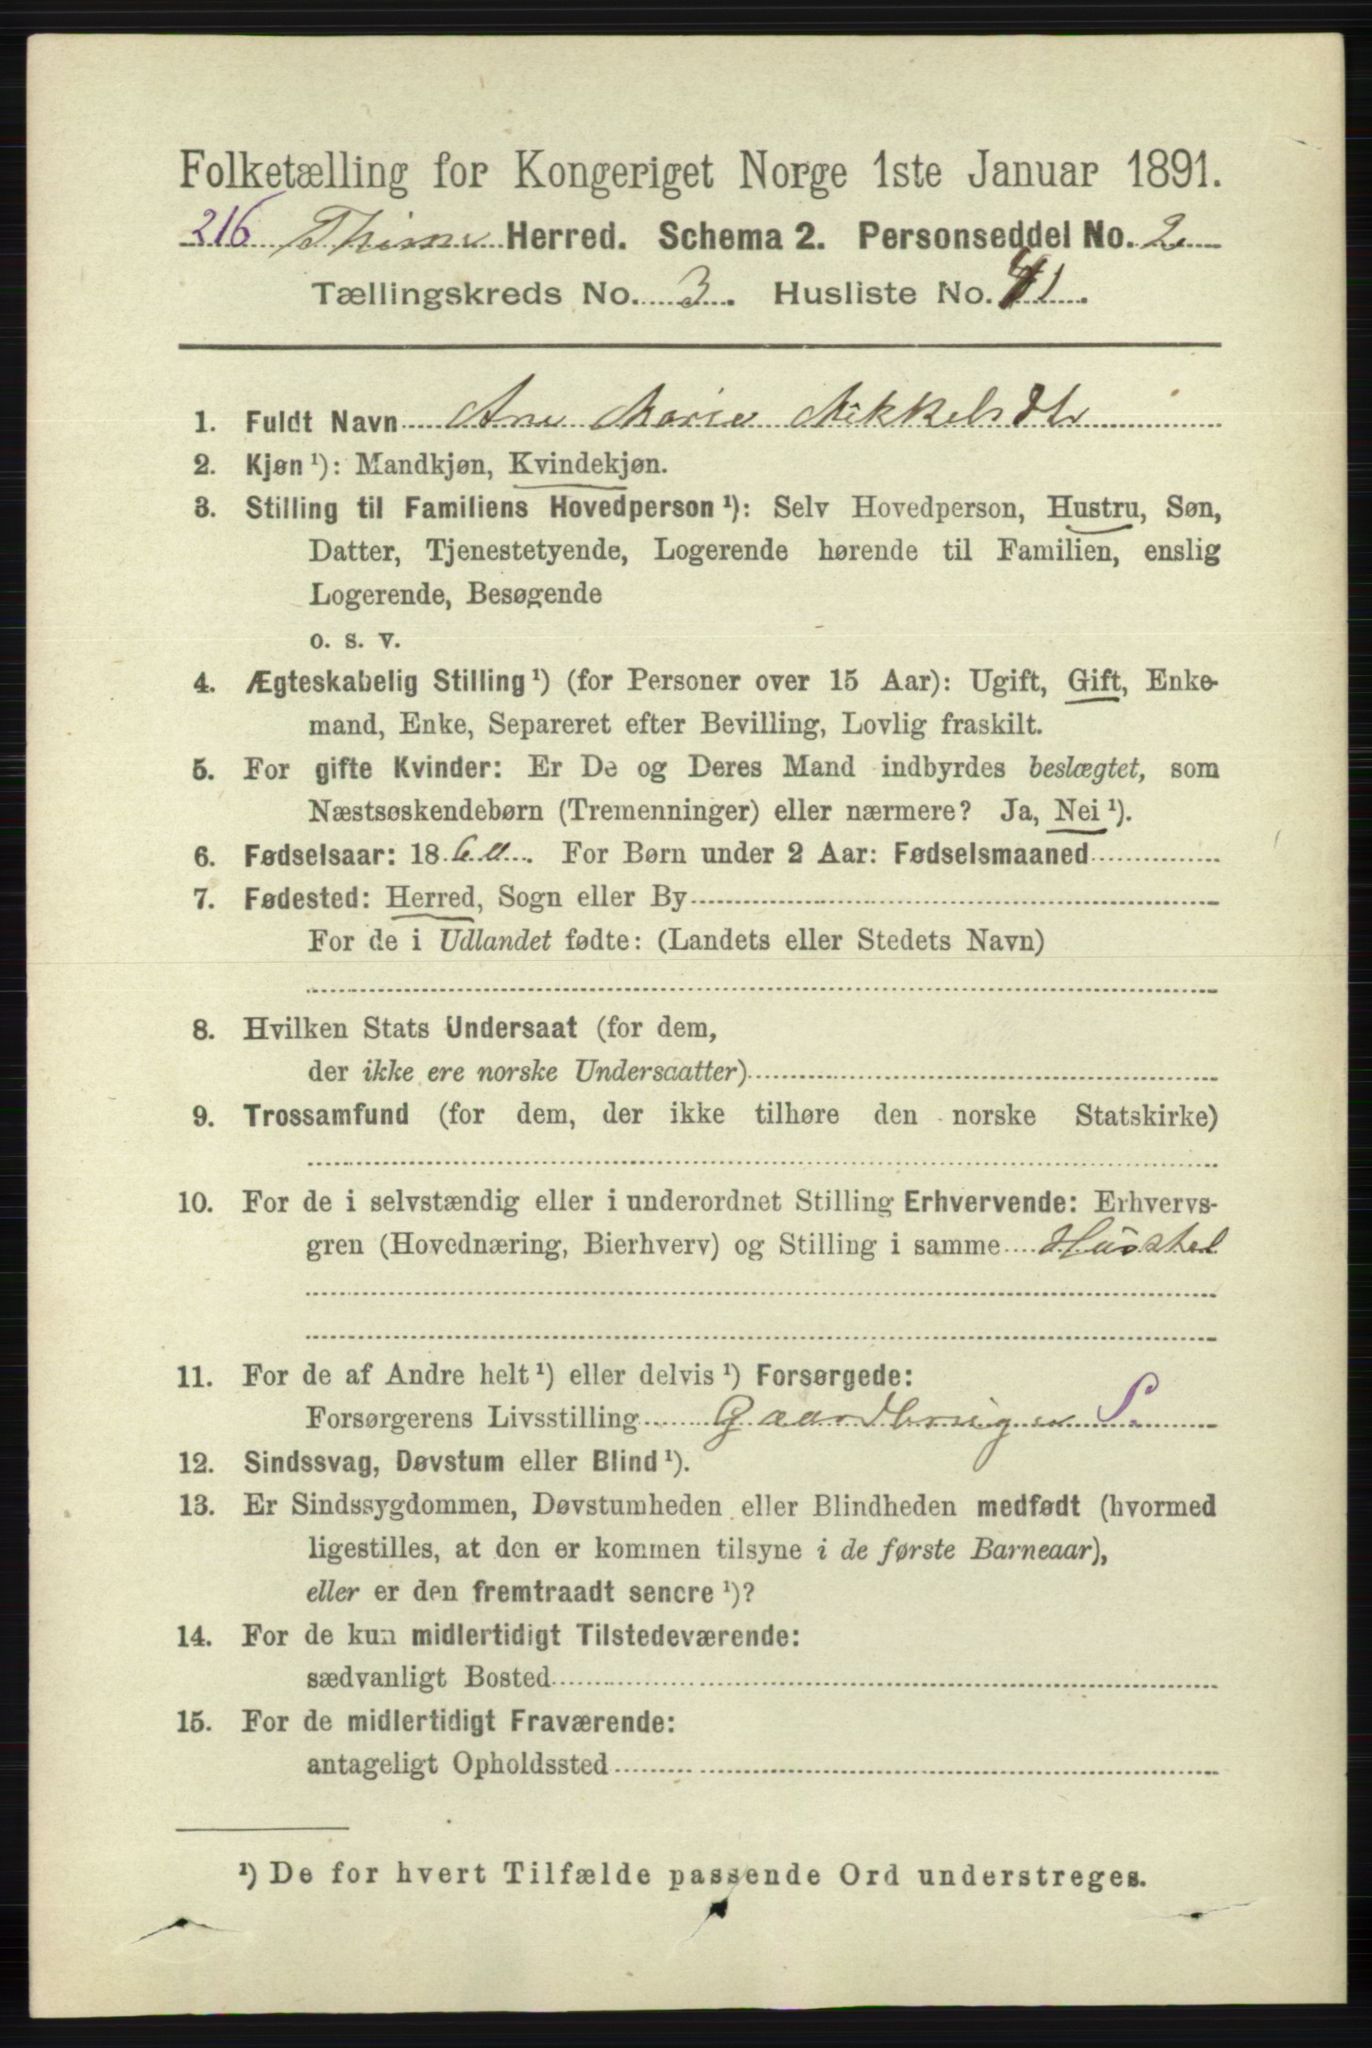 Folketælling for Kongeriget Norge 1ste Januar 1891.
216 Thime Herred. Schema 2. Personseddel No. 2
Tællingskreds No. 3. Husliste No. 41.
1. Fuldt Navn Ane Marie Mikkelsdtr
2. Kjøn¹): Mandkjøn, Kvindekjøn.
3. Stilling til Familiens Hovedperson¹): Selv Hovedperson, Hustru, Søn,
Datter, Tjenestetyende, Logerende hørende til Familien, enslig
Logerende, Besøgende
o. s. v.
4. Ægteskabelig Stilling¹) (for Personer over 15 Aar): Ugift, Gift, Enke-
mand, Enke, Separeret efter Bevilling, Lovlig fraskilt.
5. For gifte Kvinder: Er De og Deres Mand indbyrdes beslægtet, som
Næstsøskendebørn (Tremenninger) eller nærmere? Ja, Nei¹).
6. Fødselsaar: 1860. For Børn under 2 Aar: Fødselsmaaned
7. Fødested: Herred, Sogn eller By
For de i Udlandet fødte: (Landets eller Stedets Navn)
8. Hvilken Stats Undersaat (for dem,
der ikke ere norske Undersaatter)
9. Trossamfund (for dem, der ikke tilhøre den norske Statskirke)
10. For de i selvstændig eller i underordnet Stilling Erhvervende: Erhvervs-
gren (Hovednæring, Bierhverv) og Stilling i samme Husstel
11. For de af Andre helt¹) eller delvis¹) Forsørgede:
Forsørgerens Livsstilling Gaardbruger S.
12. Sindssvag, Døvstum eller Blind¹).
13. Er Sindssygdommen, Døvstumheden eller Blindheden medfødt (hvormed
ligestilles, at den er kommen tilsyne i de første Barneaar),
eller er den fremtraadt senere¹)?
14. For de kun midlertidigt Tilstedeværende:
sædvanligt Bosted
15. For de midlertidigt Fraværende:
antageligt Opholdssted
¹) De for hvert Tilfælde passende Ord understreges.